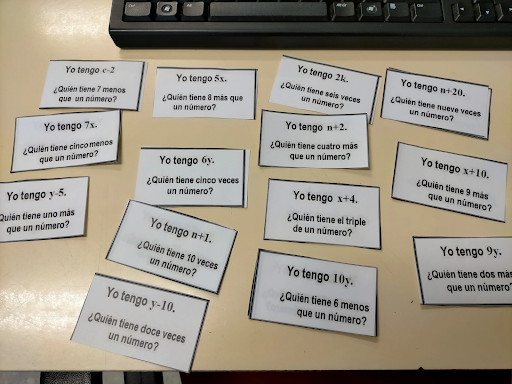 Yo tengo c-2
¿Quién tiene 7 menos
que un número?
Yo tengo 5x.
¿Quién tiene 8 más que
un número?
Yo tengo 2k.
¿Quién tiene seis veces
un número?
Yo tengo n+20.
¿Quién tiene nueve veces
un número?
Yo tengo 7x.
¿Quién tiene cinco menos
que un número?
Yo tengo n+2.
¿Quién tiene cuatro más
que un número?
Yo tengo 6y.
¿Quién tiene cinco veces
un número?
Yo tengo x+10.
¿Quién tiene 9 más
que un número?
Yo tengo y-5.
¿Quién tiene uno más
que un número?
Yo tengo x+4.
¿Quién tiene el triple
de un número?
Yo tengo n+1.
¿Quién tiene 10 veces
un número?
Yo tengo 9y.
¿Quién tiene dos más
que un número?
Yo tengo 10y.
¿Quién tiene 6 menos
que un número?
Yo tengo y-10.
¿Quién tiene doce veces
un número?